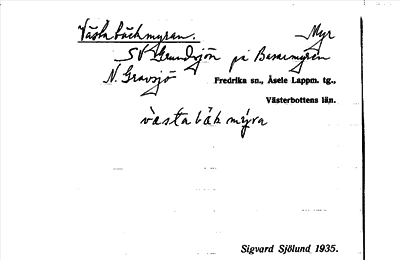 Västabäckmyran. Myr
SV Grundsjön på Basarmyran
N. Gravsjö Fredrika sn., Åsele Lappm. tg.,
Västerbottens län.
västabäkmýra
Sigvard Sjölund 1935.